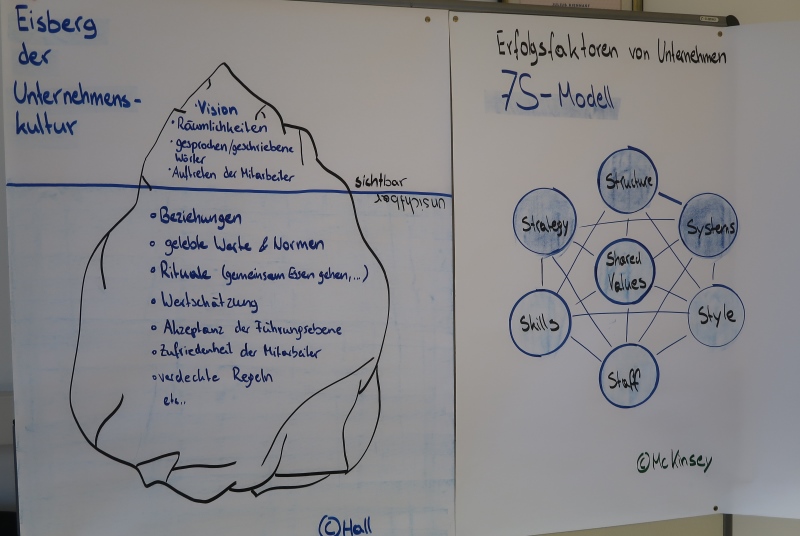 Eisberg
der
Unternehmens-
kultur
• Vision
• Räumlichkeiten
• gesprochen/geschriebene
Wörter
• Auftreten der Mitarbeiter
sichtbar
unsichtbar
• Beziehungen
• gelebte Werte & Normen
• Rituale (gemeinsam Essen gehen,...)
• Wertschätzung
• Akzeptanz der Führungsebene
• Zufriedenheit der Mitarbeiter
• verdeckte Regeln
etc..
© Hall
Erfolgsfaktoren von Unternehmen
7S-Modell
Structure
Strategy
Systems
Shared
Values
Skills
Style
Staff
© McKinsey